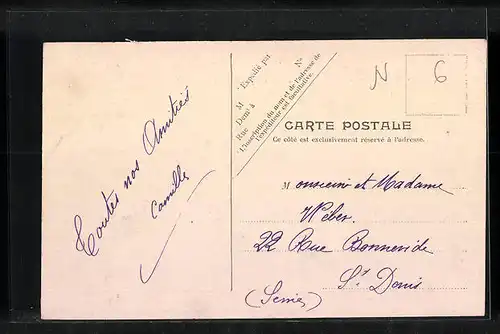 Toutes nos Amitiés
Camille
Expédié par
M
Demt à
Rue
No
L'inscription du nom et de l'adresse de
l'expéditeur est facultative.
N
6
CARTE POSTALE
Ce côté est exclusivement réservé à l'adresse.
Monsieur et Madame
Weber
22 Rue
St Denis
(Seine)